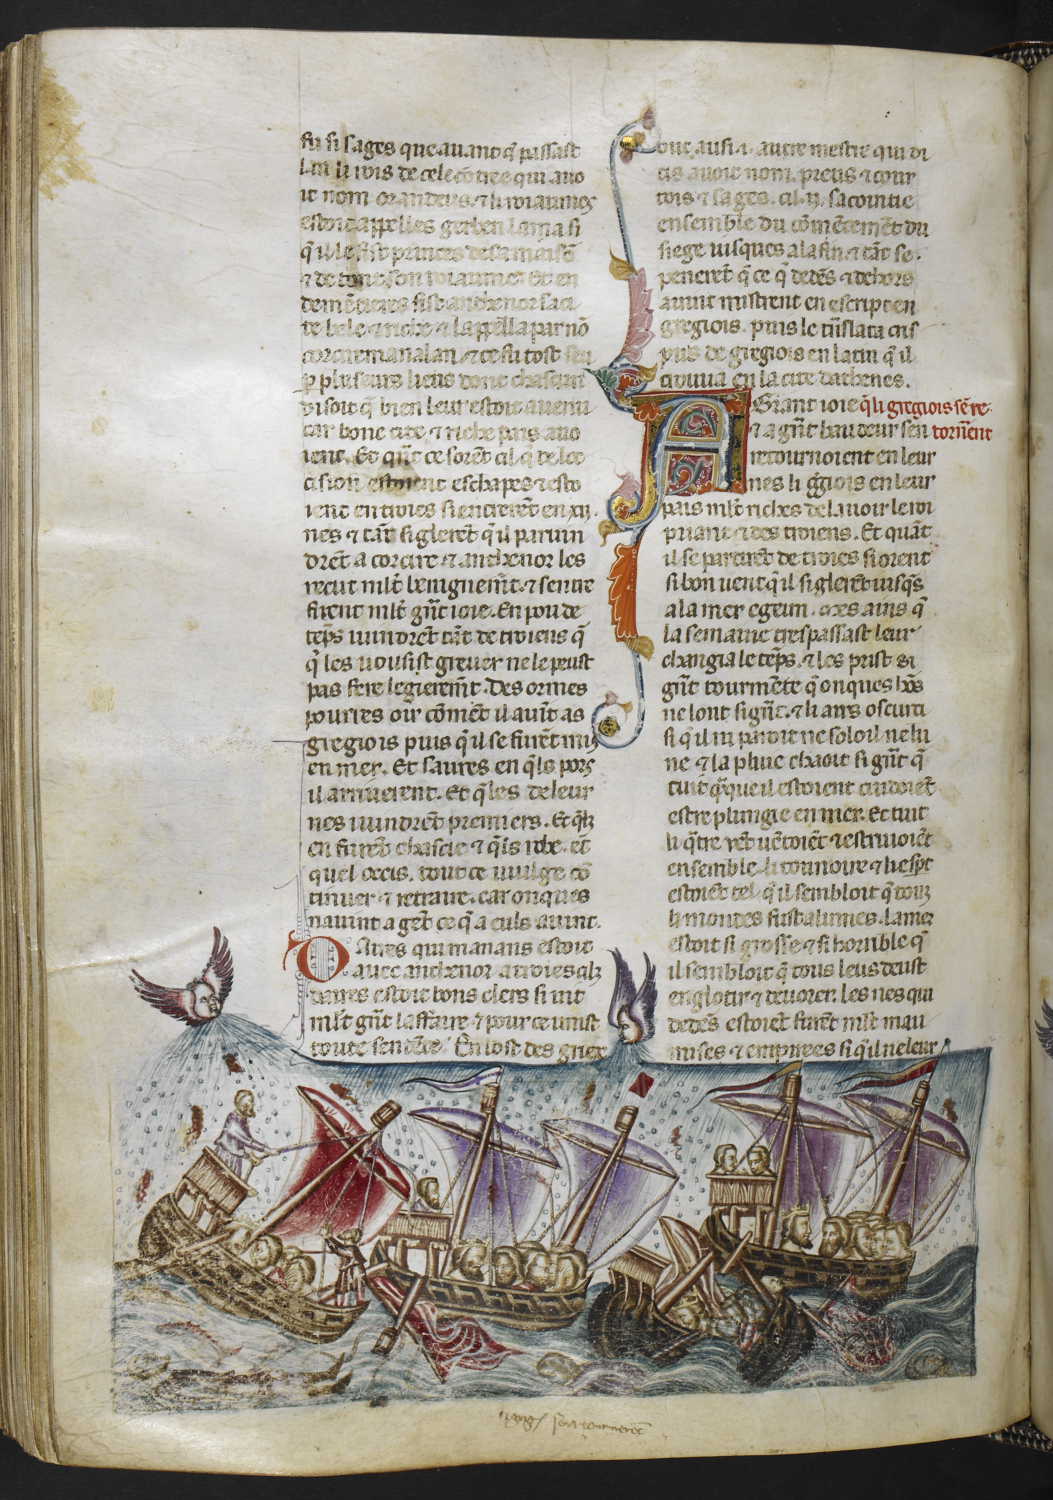 fu si sages que auant q̃ passast
lan li rois de cele cõtree qui auo
it nom orandeus. ⁊ li roiaumes
estoit appelles gerbenlama si
q̃ il le fist princes de sa maisõ
⁊ de tout son roiaume. Et en
demẽtieres fist anthenor sa ci
te bele ⁊ riche ⁊ lappella par nõ
corcire ⁊ ce fu tost seu
ꝑ pluseurs liens dont chascun
disoit q̃ bien leur estoit auenu
car bone cite ⁊ riche pais auo
ient. Et qñt ce sorent cil q̃ de loc
cision estoient eschapes ⁊ esto
ient en troies si entrerẽt en xij.
nes ⁊ tãt siglerẽt q̃ il paruin
drẽt a corcire ⁊ anthenor les
recut ml̃t benignem̃t ⁊ sentre
firent ml̃t gñt ioie. En pou de
tẽps uindrẽt tãt de troiens q̃
q̃ les uousist greuer ne le peust
pas fere legierem̃t. Des ormes
pourres oir cõmẽt il auĩt as
gregiois puis q̃ il se furẽt mis
en mer. Et saures en q̃ls pors
il arriuerent. Et q̃les de leur
nes uindrẽt premiers. Et q̃lz
en furẽt chascie ⁊ q̃ls robe. et
quel occis. tout ce uuilge cõ
tinuer ⁊ retraire. car onques
nauint a gẽt ce q̃ a euls auint.
Daires qui manans estoit
auec anthenor a troies qlz
daires estoit bons clers si uit
ml̃t gñt laffaire ⁊ pour ce umst
toute sentẽce. En lost des griex
out ausi .i. autre mestre qui di
tis auoit nom. preus ⁊ cour
tois ⁊ sages. cil .ij. sacointie
ensemble du cõmẽcemẽt du
siege iusques a la fin ⁊ tãt se
penerẽt q̃ ce q̃ dedẽs ⁊ dehors
auint mistrent en escript en
gregiois. puis le trñslata cns
pius de gregiois en latin q̃ il
trouua en la cite dathenes.
A Grant ioie q̃ li gregiois sẽ re
⁊ a gñt baudeur sen tornẽnt
retournoient en leur
nes li gr̃giois en leur
pais ml̃t riches de lauoir le roi
priant ⁊ des troiens. Et quãt
il se partirẽt de troies si orent
si bon uent q̃ il siglerẽt iusq̃s
a la mer egeum. mes ains q̃
la semaine trespassast leur
changia le tẽps. ⁊ les prist si
gñt tourmẽte q̃ onques hõs
ne lont si gñt. ⁊ li airs oscurci
si q̃ il ni paroit ne soloil ne lu
ne ⁊ la pluie chaoit si gñt q̃
tuit q̃que il estoient cuidoiẽt
estre plungie en mer. Et tuit
li q̃tre vẽt uẽtoiẽt ⁊ estriuoiẽt
ensemble. li tounoire ⁊ li espr
estoiẽt tel q̃ il sembloit q̃ touz
li mondes fust alumes. la mer
estoit si grosse ⁊ si horrible q̃
il sembloit q̃ tous leus deust
englotir ⁊ deuorer. les nes qui
dedẽs estoiẽt furẽt ml̃t mau
mises ⁊ empirees si q̃ il ne leur